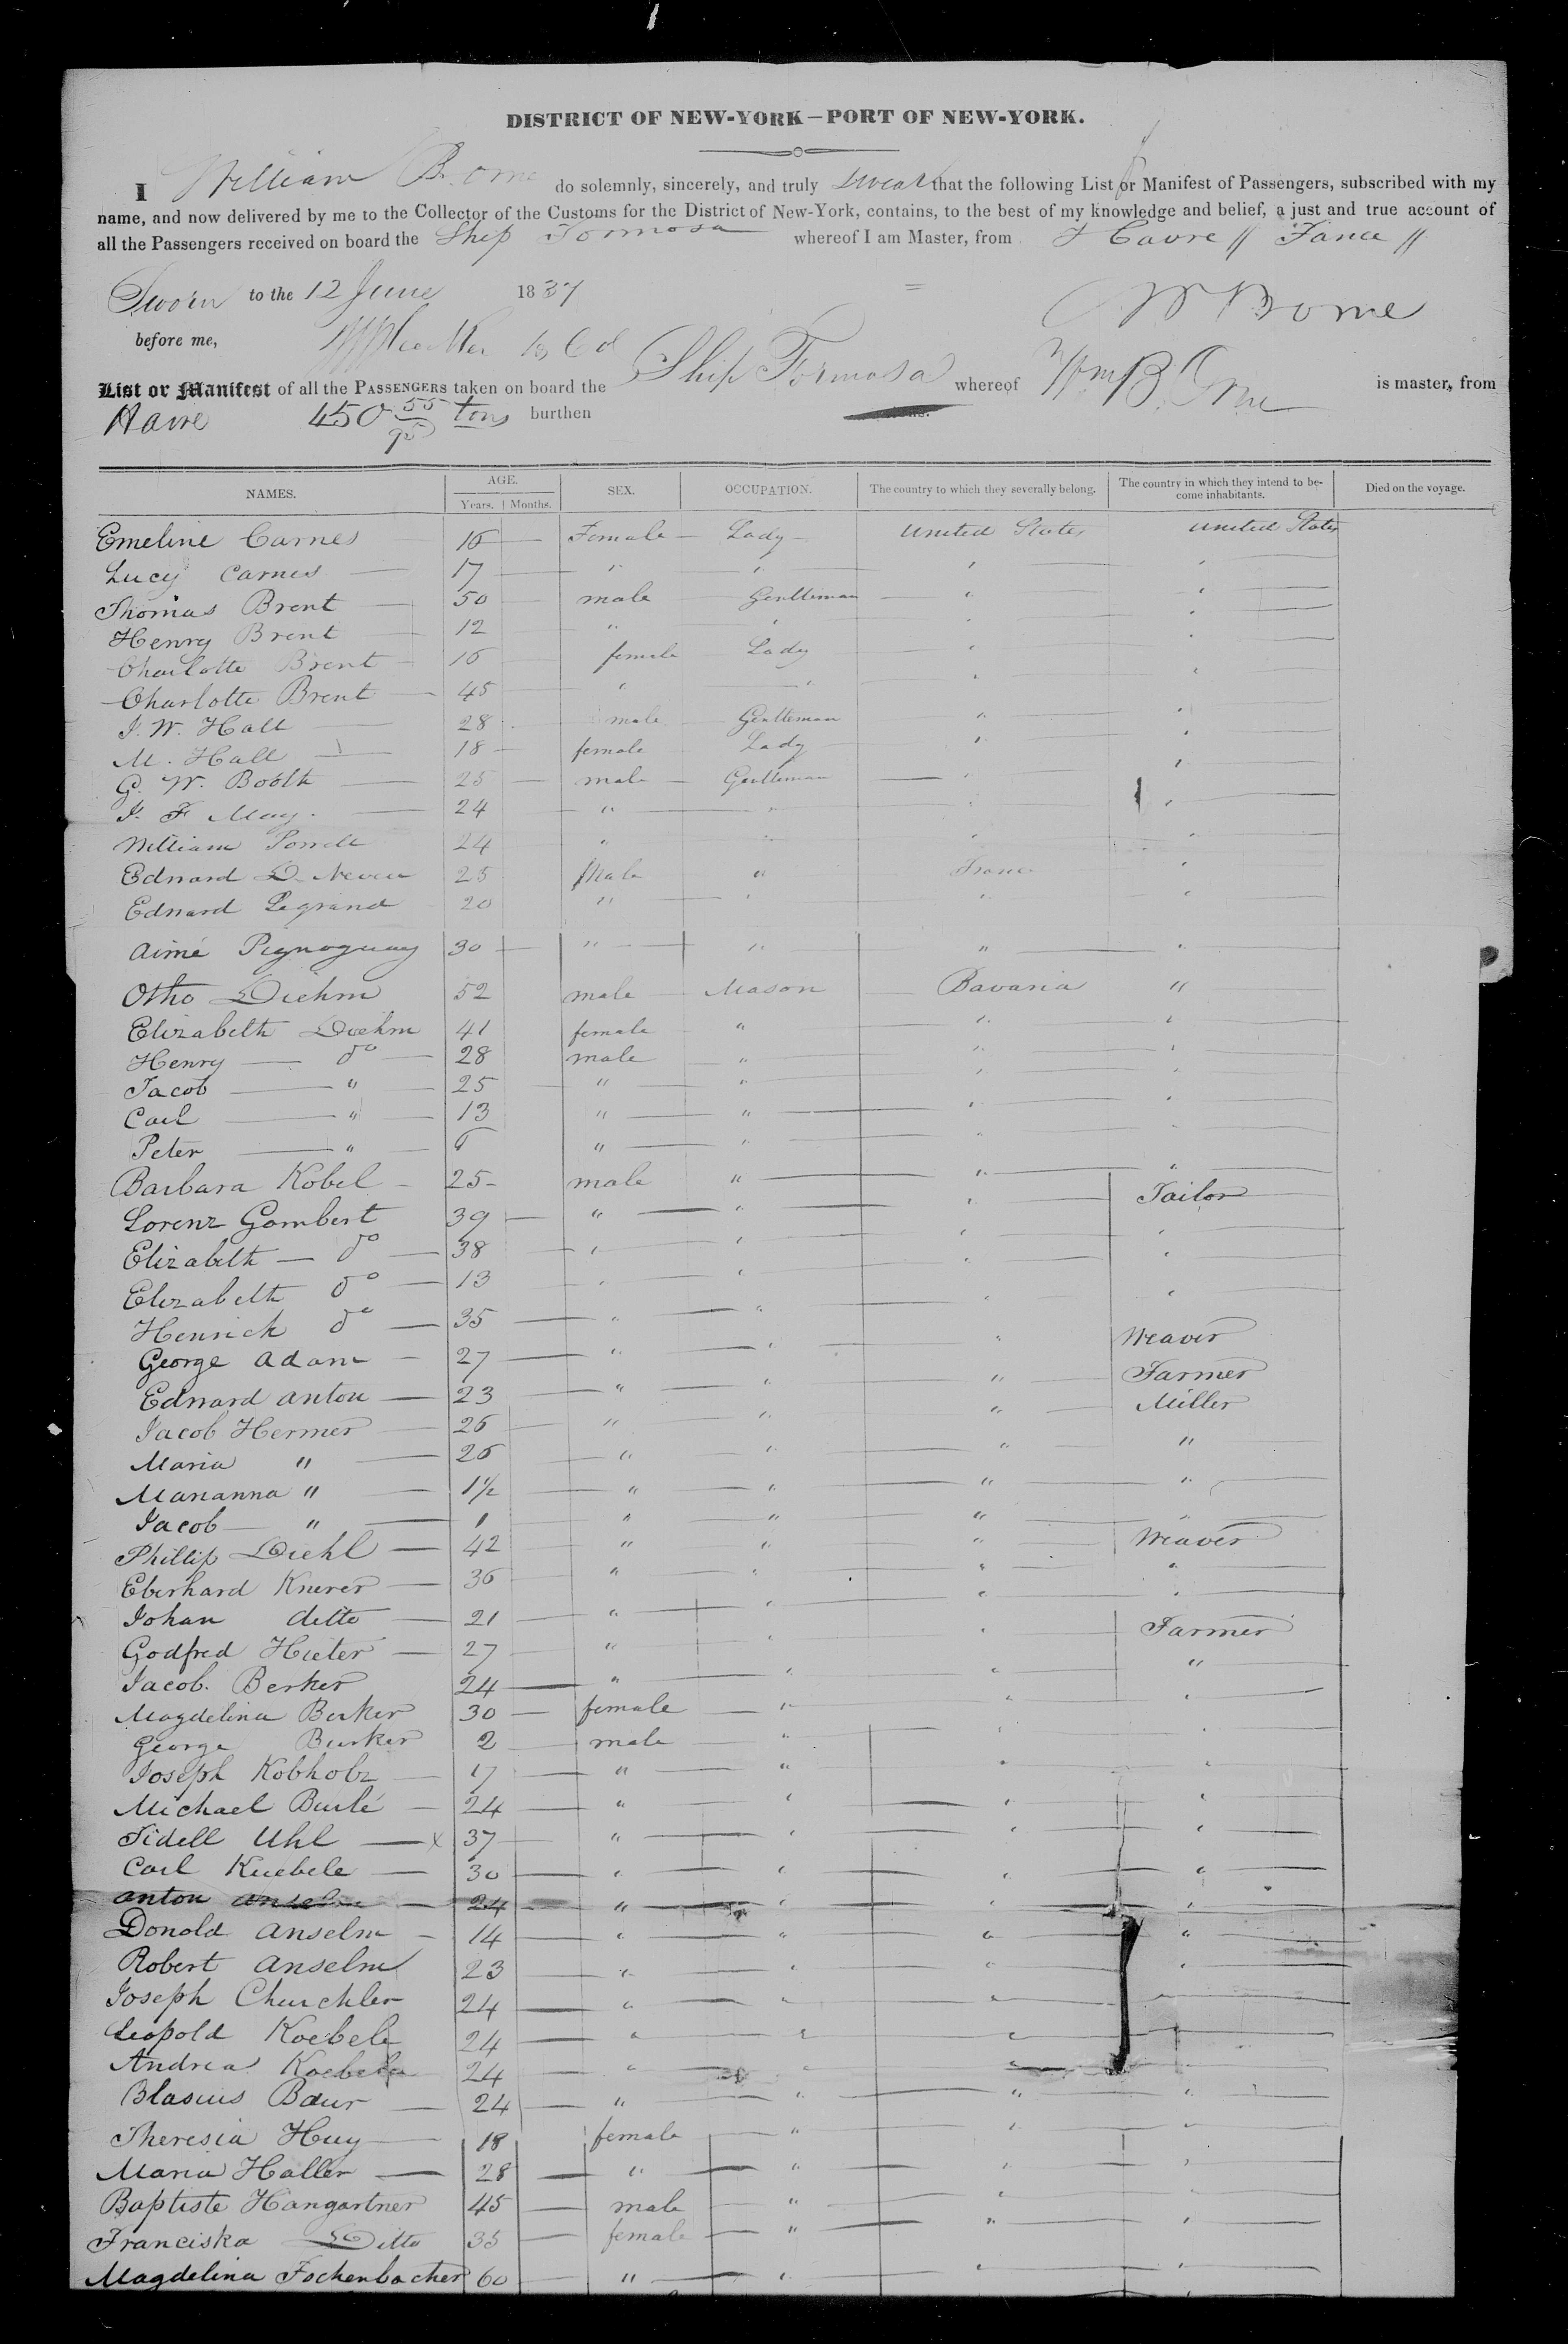 DISTRICT OF NEW-YORK—PORT OF NEW-YORK.
I William B. Orne do solemnly, sincerely, and truly swear that the following List or Manifest of Passengers, subscribed with my
name, and now delivered by me to the Collector of the Customs for the District of New-York, contains, to the best of my knowledge and belief, a just and true account of
all the Passengers received on board the Ship Formosa whereof I am Master, from Havre // France //
Sworn to the 12 June 1837 W B Orne
before me,
List or Manifest of all the PASSENGERS taken on board the Ship Formosa whereof Wm B. Orne is master, from
Havre 450 55/95 tons burthen
NAMES. AGE. Years. Months. SEX. OCCUPATION. The country to which they severally belong. The country in which they intend to become inhabitants. Died on the voyage.
Emeline Carnes 16 — Female — Lady — United States United States
Lucy Carnes — 17 " " " "
Thomas Brent — 50 male Gentleman " "
Henry Brent 12 " " " "
Charlotte Brent 16 female Lady " "
Charlotte Brent 45 " " " "
J. W. Hall 28 male Gentleman " "
M. Hall 18 female Lady " "
G. W. Booth 25 male Gentleman " "
J. F May. 24 " " " "
William Powell 24 " " " "
Edward D. 25 Male " France "
Edward Legrand 20 " " " "
Aimé 30 " " " "
Otho Diehm 52 male Mason Bavaria "
Elizabeth Diehm 41 female " " "
Henry — do — 28 male " " "
Jacob — " — 25 " " " "
Carl — " — 13 " " " "
Peter — " — 6 " " " "
Barbara Kobel 25 male " " "
Lorenz Gombert 39 " " " Tailor
Elizabeth — do — 38 " " " "
Elizabeth do — 13 " " " "
Henrich do — 35 " " " "
George Adam 27 " " " Weaver
Edward Anton — 23 " " " Farmer
Jacob Hermer 26 " " " Miller
Maria " 26 " " " "
Marianna " 1½ " " " "
Jacob — " 1 " " " "
Phillip Diehl — 42 " " " Weaver
Eberhard Knerer — 36 " " " "
Johan ditto — 21 " " " "
Godfred Hieter — 27 " " " Farmer
Jacob. Berker 24 " " " "
Magdelina Berker 30 — female " " "
George Berker 2 male " " "
Joseph Kobholz 17 " " " "
Michael Burlé 24 " " " "
Fidell Uhl — x 37 " " " "
Carl Kuebele — 30 " " " "
Anton Anselm — 24 " " " "
Donold Anselm 14 " " " "
Robert Anselm 23 " " " "
Joseph Churchler 24 " " " "
Leopold Koebele 24 " " " "
Andreas Koebele 24 " " " "
Blasius Baur 24 " " " "
Theresia Huy 18 female " " "
Maria Haller — 28 " " " "
Baptiste Hangartner 45 male " " "
Franciska Ditto 35 female " " "
Magdelina Fochenbacher 60 " " " "